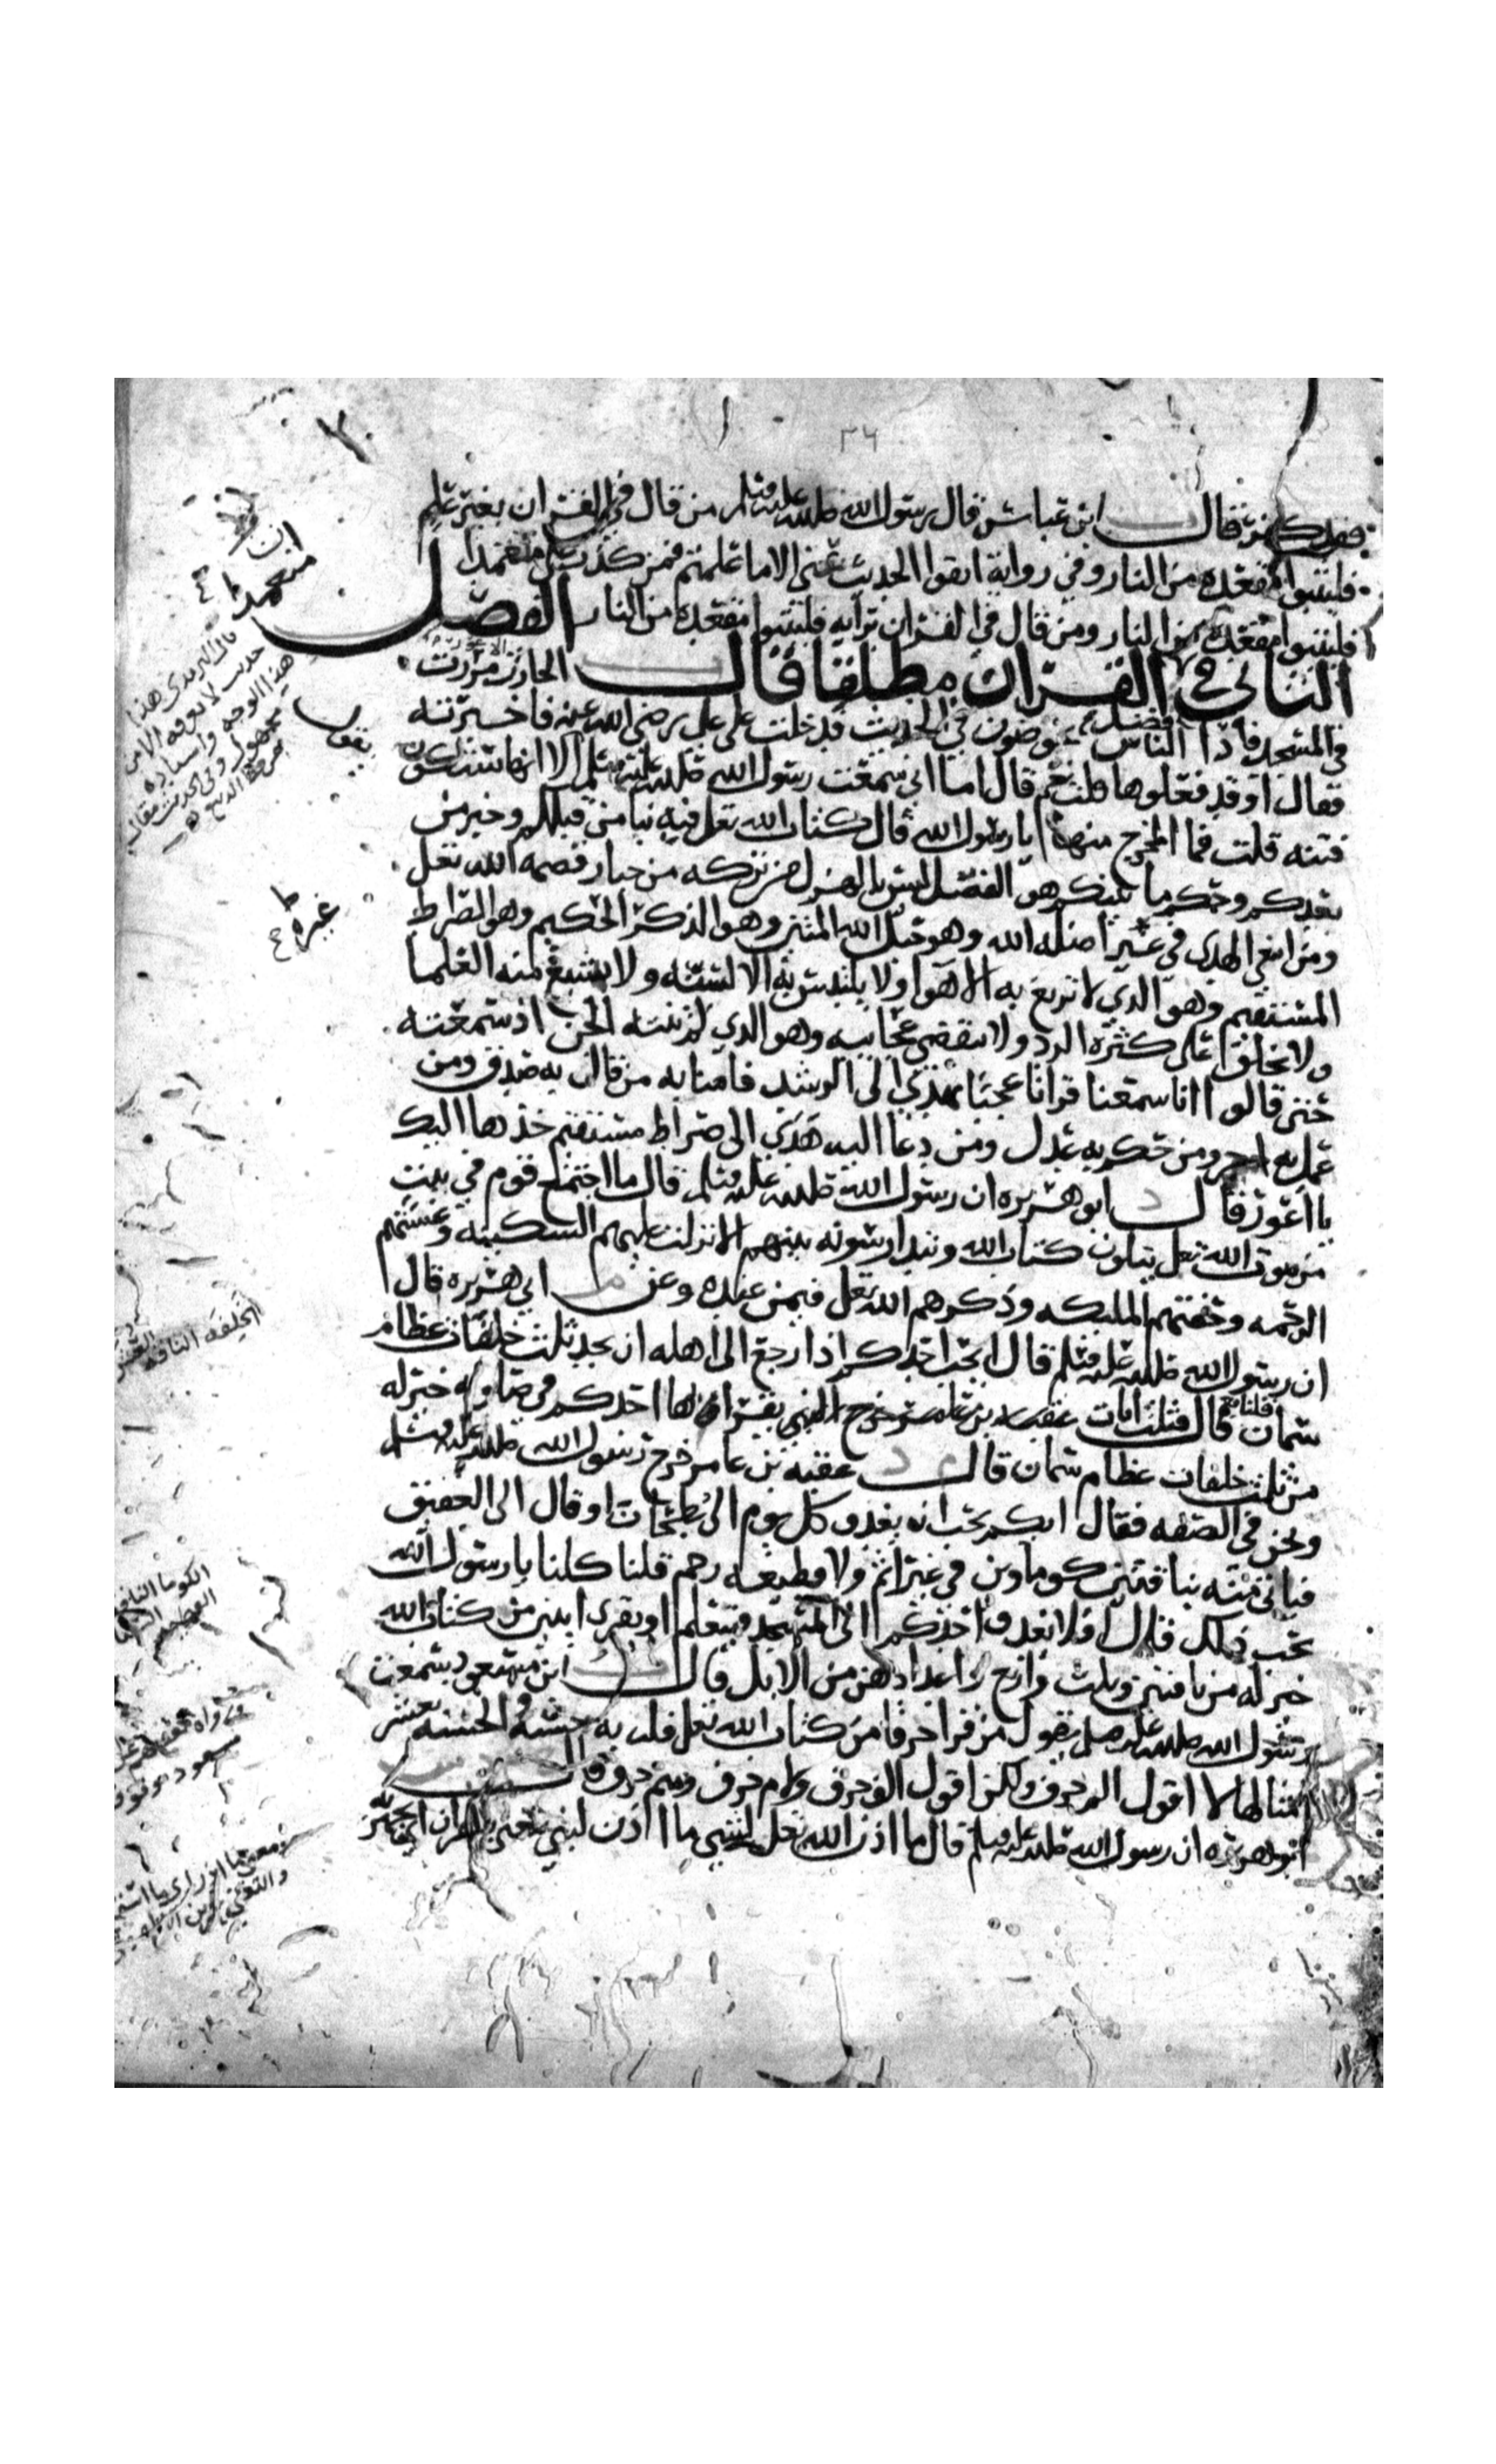 ٣٤
فقد كفر قال ابن عباس قال رسول الله صلى الله عليه وسلم من قال في القران بغير علم
فليتبوا مقعده من النار وفي رواية اتقوا الحديث عني الا ما علمتم فمن كذب علي متعمدا
فليتبوا مقعده من النار ومن قال في القران برايه فليتبوا مقعده من النار الفصل
الثاني في فضل القران مطلقا قال الحارث الاعور مررت
في المسجد فاذا الناس يخوضون في الحديث فدخلت على علي رضي الله عنه فاخبرته
فقال او قد فعلوها قلت نعم قال اما اني سمعت رسول الله صلى الله عليه وسلم الا انها ستكون
فتنه قلت فما المخرج منها يا رسول الله قال كتاب الله تعلى فيه نبا من قبلكم وخبر من
بعدكم وحكم ما بينكم هو الفصل ليس بالهزل من تركه من جبار قصمه الله تعلى
ومن ابتغى الهدى في غيره اضله الله وهو حبل الله المتين وهو الذكر الحكيم وهو الصراط
المستقيم وهو الذي لا تزيغ به الاهوا ولا يلتبس به الالسنه ولا يشبع منه العلما
ولا يخلق على كثرة الرد ولا تنقضي عجايبه وهو الذي لم تنته الجن اذ سمعته
حتى قالوا انا سمعنا قرانا عجبا يهدي الى الرشد فامنا به من قال به صدق ومن
عمل به اجر ومن حكم به عدل ومن دعا اليه هدي الى صراط مستقيم خذها اليك
يا اعور قال ابو هريره ان رسول الله صلى الله عليه وسلم قال ما اجتمع قوم في بيت
من بيوت الله تعلى يتلون كتاب الله ويتدارسونه بينهم الا نزلت عليهم السكينه وغشيتهم
الرحمه وحفتهم المليكه وذكرهم الله تعلى فيمن عنده وعن ابي هريره قال
ان رسول الله صلى الله عليه وسلم قال ايحب احدكم اذا رجع الى اهله ان يجد ثلث خلفات عظام
سمان قلنا نعم قال فثلث ايات يقرا بها احدكم في صلوته خير له
من ثلث خلفات عظام سمان قال عقبة بن عامر خرج رسول الله صلى الله عليه وسلم
ونحن في الصفه فقال ايكم يحب ان يغدو كل يوم الى بطحان او قال الى العقيق
فياتي منه بناقتين كوماوين في غير اثم ولا قطيعه رحم قلنا كلنا يا رسول الله
نحب ذلك قال افلا يغدو احدكم الى المسجد فيتعلم او يقرى ايتين من كتاب الله
خير له من ناقتين وثلث واربع واعدادهن من الابل قال ابن مسعود سمعت
رسول الله صلى الله عليه وسلم يقول من قرا حرفا من كتاب الله تعلى فله به حسنه والحسنه بعشر
امثالها لا اقول الم حرف ولكن اقول الف حرف ولام حرف وميم حرف قال
ابو هريره ان رسول الله صلى الله عليه وسلم قال ما اذن الله تعلى لشي ما اذن لنبي يتغنى بالقران يجهر به
ان
من جهد
قال الترمذي هذا
حديث لا نعرفه الا من
هذا الوجه واسناده
مجهول وفي الحديث مقال
يقول
غيره
الخلفه الناقه
الكوما الناقه
العظيمه